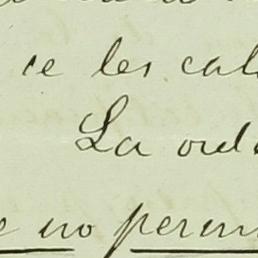 ce les cal
La orde
e no perm